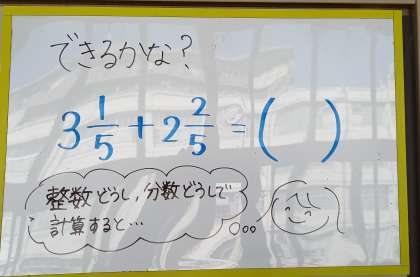 できるかな?
3 1/5 + 2 2/5 = ( )
整数どうし,分数どうしで
計算すると…